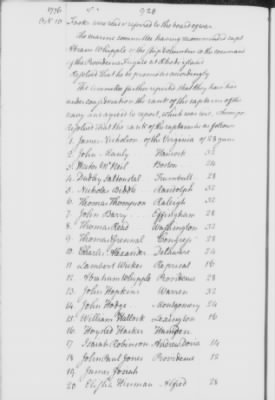 1776 5. 328
Oct. 10
The marine committee having recommended capt
Abram Whipple of the Ship Columbus to the command
of the Providence frigate at Rhode Island
Resolved that he be promoted accordingly
The committee farther reports that they have had
under consideration the rank of the captains of the
navy and agreed to report, which was read, whereupon
Resolved that the rank of the captains be as follows
1. James Nicholson of the Virginia of 28 guns
2 John Manly Hancock 32
3 Hector McNeil Boston 24
4 Dudley Saltonstal Trumbull 28
5 Nicholas Biddle Randolph 32
6 Thomas Thompson Raleigh 32
7 John Barry Effingham 28
8 Thomas Read Washington 32
9 Thomas Grennal Congress 28
10 Charles Alexander Delaware 24
11 Lambert Wickes Reprisal 16
12 Abraham Whipple Providence 28
13 John Hopkins Warren 32
14 John Hodge Montgomery 24
15 William Hallock Lexington 16
16 Hoysted Hacker Hamden
17 Isaiah Robinson Andrew Doria 14
18 John Paul Jones Providence 12
19 James Josiah
20 Elisha Hinman Alfred 28